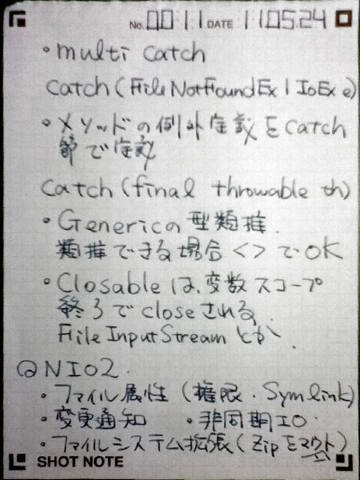 No. 0011 DATE 11.05.24
・multi catch
catch(FileNotFoundEx | IoEx e)
・メソッドの例外定義をcatch
節で定義
catch(final throwable th)
・Genericの型類推.
類推できる場合<>でOK
・Closableは、変数スコープ
終了でcloseされる.
FileInputStreamとか
@NIO2.
・ファイル属性(権限・Symlink)
・変更通知 ・非同期IO・
・ファイルシステム拡張(Zipをマウント)
SHOT NOTE